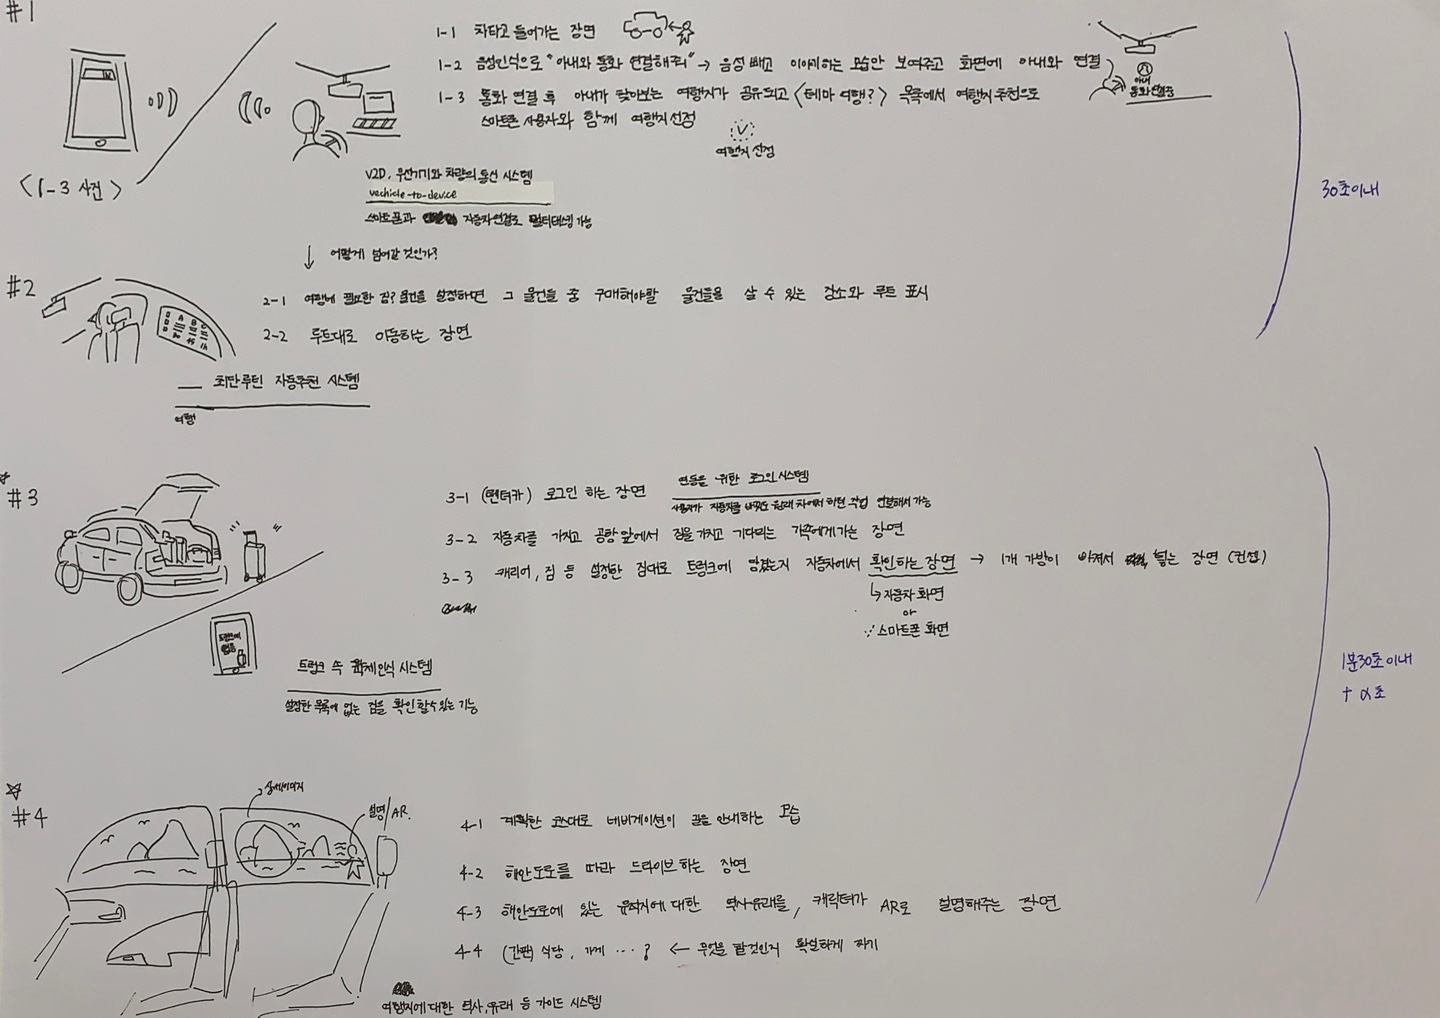 #1
1-1 차타고 들어가는 장면
1-2 음성인식으로 "아내와 통화 연결해줘" → 음성 빼고 이야기하는 모습만 보여주고 화면에 아내와 연결
아내
통화 연결중
1-3 통화 연결 후 아내가 찾아보는 여행지가 공유되고 <테마 여행?> 목록에서 여행지 추천으로
스마트폰 사용자와 함께 여행지 선정
여행지 선정
<1-3 사건>
V2D, 무선기기와 차량의 통신 시스템
vechicle-to-device
스마트폰과 자동차 연결로 멀티태스킹 가능
30초이내
↓ 어떻게 넘어갈 것인가?
#2
2-1 여행에 필요한 짐? 물건을 설정하면 그 물건들 중 구매해야할 물건들을 살 수 있는 장소와 루트 표시
2-2 루트대로 이동하는 장면
최단루틴 자동추천 시스템
여행
#3
3-1 (렌터카) 로그인 하는 장면
연동을 위한 로그인 시스템
사용자가 자동차를 바꿔도 원래 차에서 하던 작업 연결해서 가능
3-2 자동차를 가지고 공항 앞에서 짐을 가지고 기다리는 가족에게 가는 장면
3-3 캐리어, 짐 등 설정한 짐대로 트렁크에 담겼는지 자동차에서 확인하는 장면 → 1개 가방이 빠져서 넣는 장면 (컨셉)
↳ 자동차 화면
or
스마트폰 화면
트렁크에
없음
트렁크 속 물체인식 시스템
설정한 목록에 없는 짐을 확인할 수 있는 기능
1분30초이내
+ α초
#4
상세이미지
설명/AR.
4-1 계획한 코스대로 네비게이션이 길을 안내하는 모습
4-2 해안도로를 따라 드라이브 하는 장면
4-3 해안도로에 있는 유적지에 대한 역사유래를, 캐릭터가 AR로 설명해주는 장면
4-4 (간판) 식당, 가게 ···? ← 무엇을 할것인지 확실하게 짜기
여행지에 대한 역사, 유래 등 가이드 시스템